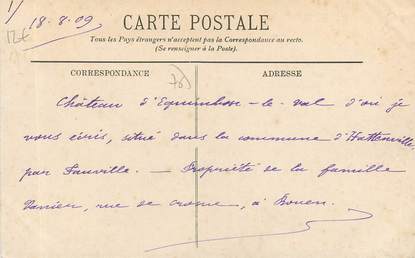 1/ 18-8-09
12€
CARTE POSTALE
Tous les Pays étrangers n'acceptent pas la Correspondance au recto.
(Se renseigner à la Poste).
CORRESPONDANCE
ADRESSE
Château d'Equimbosc-le-Val d'où je
vous écris, situé dans la commune d'Hattenville,
par Fauville. — Propriété de la famille
rue de Crosne, à Rouen.